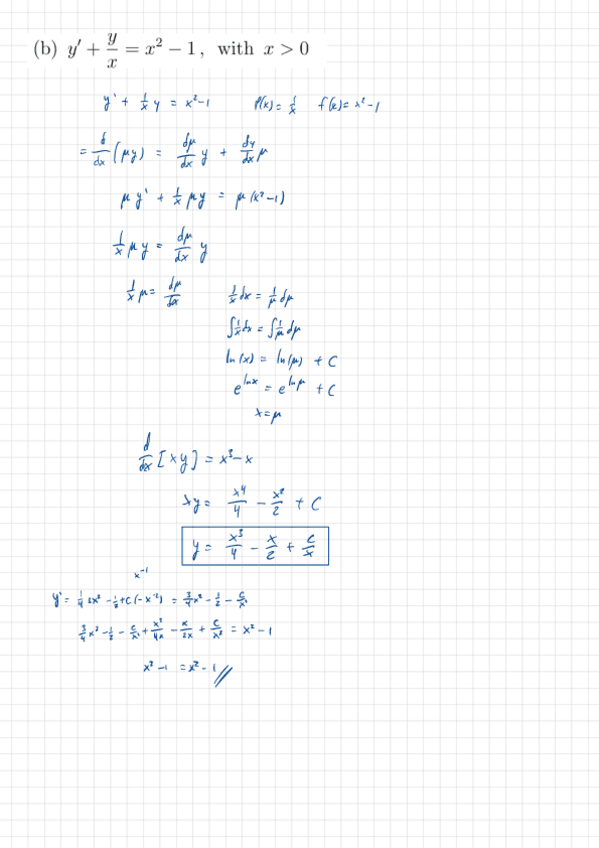 (b) y′ + y/x = x² − 1, with x > 0
y' + 1/x y = x²-1   P(x) = 1/x   f(x) = x²-1
= d/dx (μy) = dμ/dx y + dy/dx μ
μy' + 1/x μy = μ(x²-1)
1/x μy = dμ/dx y
1/x μ = dμ/dx   1/x dx = 1/μ dμ
∫1/x dx = ∫1/μ dμ
ln(x) = ln(μ) + C
e^lnx = e^lnμ + C
x = μ
d/dx [xy] = x³-x
xy = x⁴/4 - x²/2 + C
y = x³/4 - x/2 + C/x
x⁻¹
y' = 1/4 3x² - 1/2 + C(-x⁻²) = 3/4 x² - 1/2 - C/x²
3/4 x² - 1/2 - C/x² + x³/4x - x/2x + C/x² = x² - 1
x² - 1 = x² - 1 //